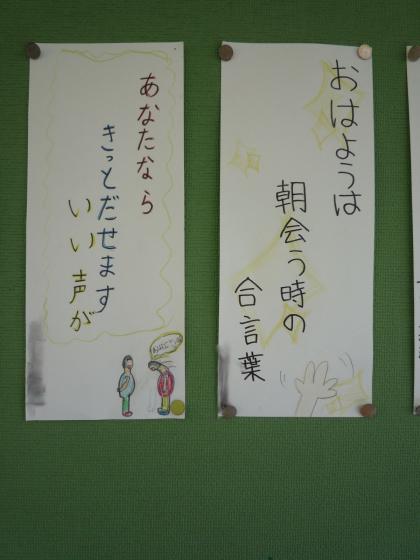 おはようは
朝会う時の
合言葉
あなたなら
きっとだせます
いい声が